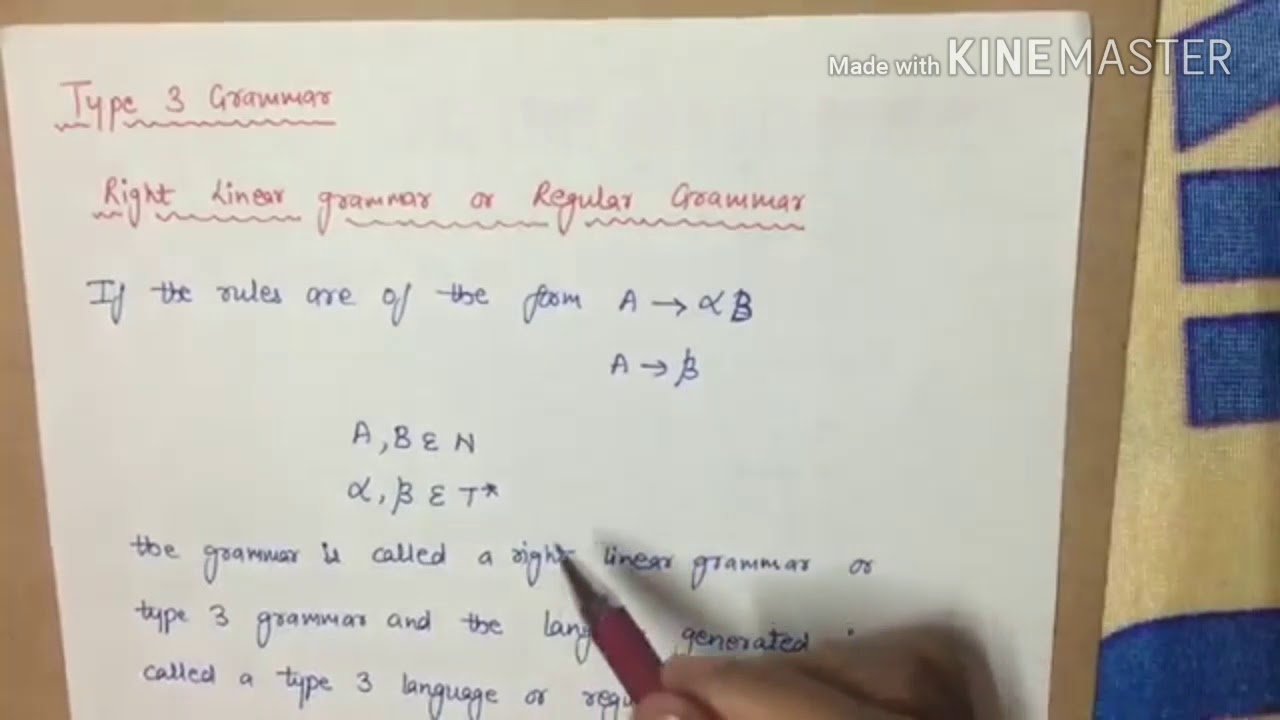 Made with KINEMASTER
Type 3 Grammar
Right Linear grammar or Regular Grammar
If the rules are of the form A → αB
A → β
A, B ε N
α, β ε T*
the grammar is called a right linear grammar or
type 3 grammar and the generated
called a type 3 language or